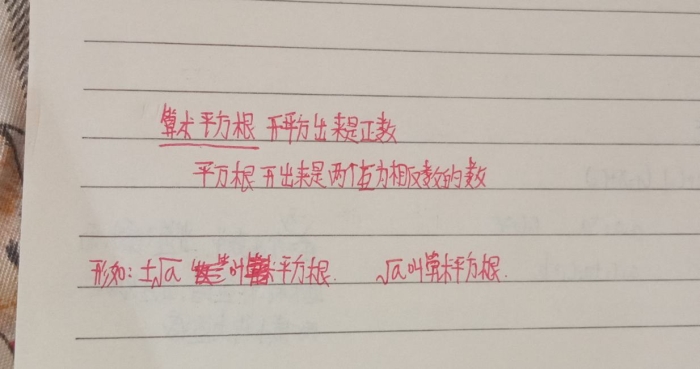 算术平方根 开平方出来是正数
平方根 开出来是两个互为相反数的数
形如：±√a 叫平方根. √a叫算术平方根.